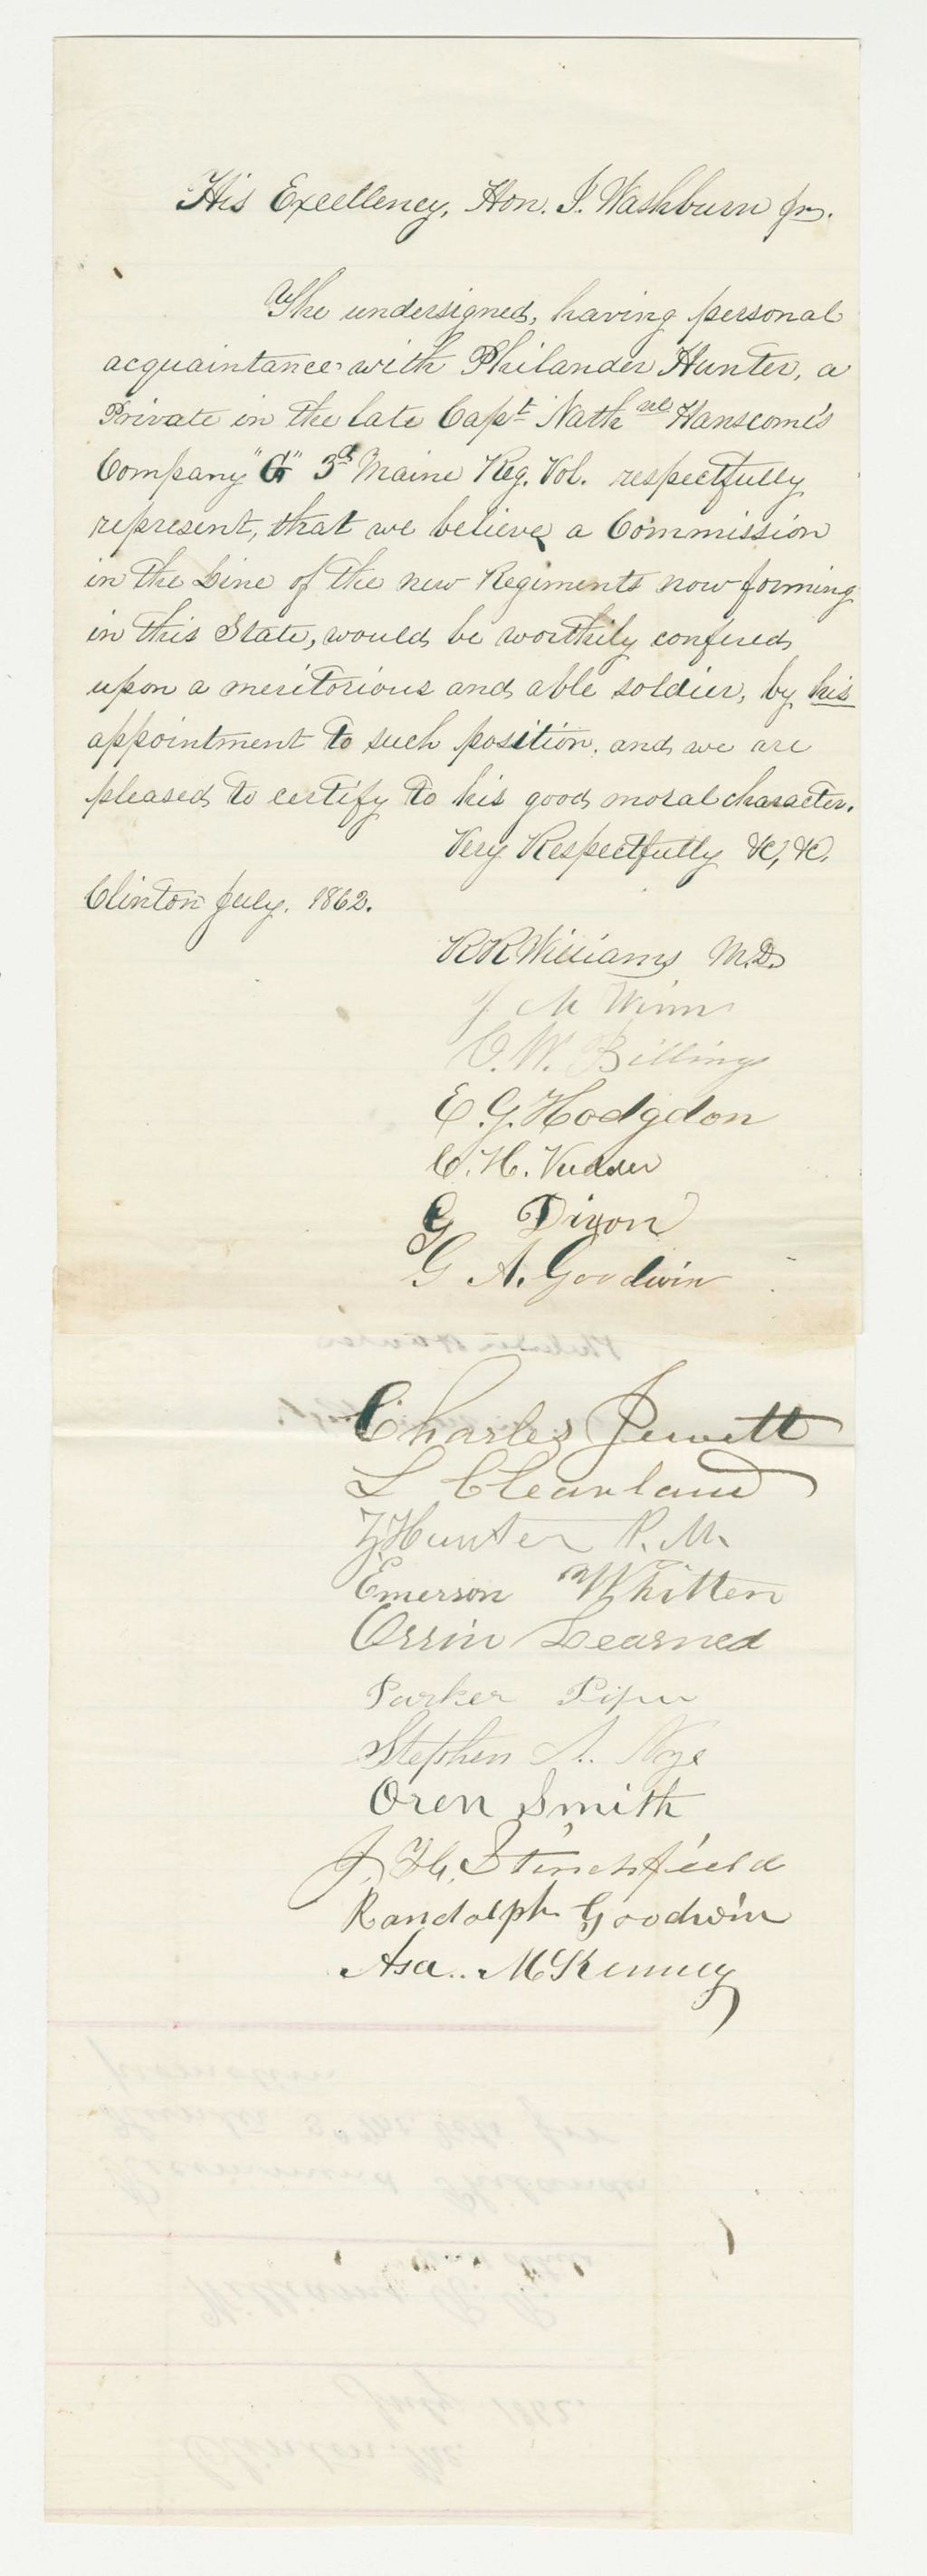 His Excellency, Hon. I. Washburn Jr.
The undersigned, having personal
acquaintance with Philander Hunter, a
Private in the late Capt Nathnel Hanscom's
Company "G" 3d Maine Reg. Vol. respectfully
represent, that we believe a Commission
in the Line of the new Regiments now forming
in this State, would be worthily confered
upon a meritorious and able soldier, by his
appointment to such position, and we are
pleased to certify to his good moral character.
Very Respectfully &c, &c.
Clinton July. 1862.
R R Williams M.D.
J M Winn
C. W. Billings
E. G. Hodgdon
C. H.
G Dixon
G A. Goodwin
Charles Jewett
L Cleaveland
Hunter P. M.
Emerson Whitten
Orrin Learned
Parker Piper
Stephen A. Noye
Oren Smith
J. H. Stinchfield
Randolph Goodwin
Asa.. McKenney